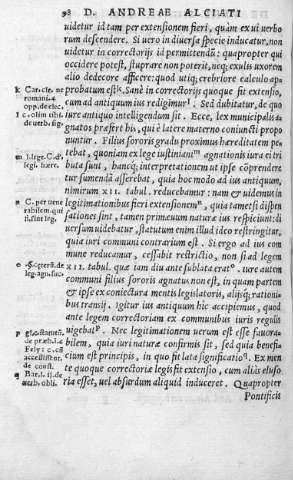 98 D. ANDREAE ALCIATI
uidetur id tam per extensionem fieri, quàm ex ui uerbo
rum descendere. Si uero in diuersa specie inducatur, non
uidetur in correctorijs id permittendũ: quapropter qui
occidere potest, stuprare non poterit, neq; exulis uxorem
alio dedecore afficere: quod utiq; crebriore calculo ap‑
probatum est k. Sanè in correctorijs quoque fit extensio,
cum ad antiquum ius redigimur l. Sed dubitatur, de quo
iure antiquo intelligendum sit. Ecce, lex municipalis a‑
gnatos praefert his, qui è latere materno coniuncti propo
nuntur. Filius sororis gradu proximus hereditatem pe‑
tebat, quoniam ex lege iustiniani m agnationis iura ei tri
buta sunt, hancq; interpretationem ut ipse cõprehende
tur sumendã asserebat, quia hoc modo ad ius antiquum,
nimirum XII. tabul. reducebamur: nam et uidemus in
legitimationibus fieri extensionem n, quia tametsi dispen
sationes sint, tamen primaeuum naturae ius respiciunt: di
uersum uidebatur, statutum enim illud ideo restringitur,
quia iuri communi contrarium est. Si ergo ad ius com
mune reducamur, cessabit restrictio, non si ad legem
XII. tabul. quae iam diu ante sublata erat o. iure autem
communi filius sororis agnatus non est, in quam partem
et ipse ex coniectura mentis legislatoris, alijsq; rationi‑
bus transij. Igitur ius antiquum hic accipiemus, quod
ante legem correctoriam ex communibus iuris regulis
uigebat p. Nec legitimationem uerum est esse fauora‑
bilem, quia iuri naturae confirmis sit, sed quia benefi‑
cium est principis, in quo fit lata significatio q. Ex men
te quoque correctoriae legis fit extensio, cum aliàs eluso
ria esset, uel absurdum aliquid induceret. Quapropter
Pontificis
k Car. cle. ne
romani.
opp. de elec.
l c. olim
de uerb. sig.
m l. lege. C. d.
legi. haere.
n C. per uene
rabilem. qui
fil. sint leg.
o
leg. agnascitur
p
de praeb.
Fely.
de const.
q Bar.
uerb. obli.